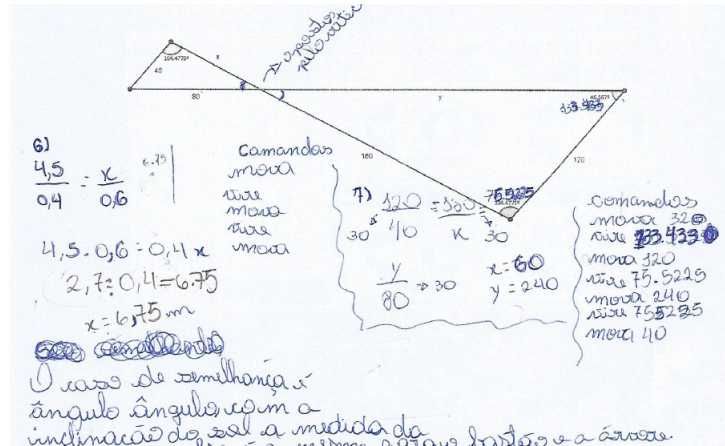 opostos
pelo vértice
104.4775°
40
x
80
y
46.567°
133.433
180
120
75.5225
6)
4,5 = x
0,4 0,6
6.75
4,5 . 0,6 = 0,4 x
2,7 : 0,4 = 6.75
x = 6,75 m
comandos
mova
vire
mova
vire
mova
7) 120 = 180
30 40 x 30
y → 30
80
x = 60
y = 240
comandos
mova 320
vire 133.433
mova 120
vire 75.5225
mova 240
vire 755225
mova 40
O caso de semelhança é
ângulo ângulo, com a
inclinação do sol a medida da
mesma para o bastão e a árvore